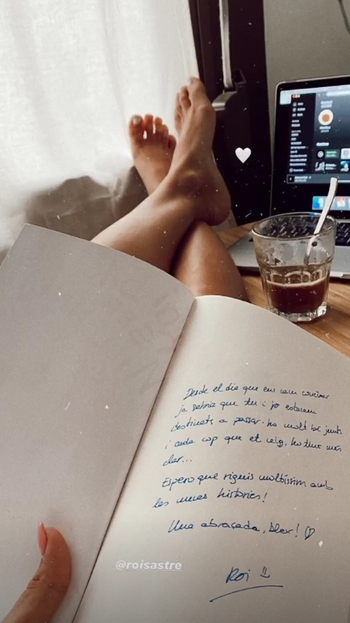 Desde el dia que ens vam conèixer
ja sabia que tu i jo estàvem
destinats a passar-ho molt bé junts
i cada cop que et veig, ho tinc més
clar...
Espero que riguis moltíssim amb
les meves històries!
Una abraçada, blor! ♡
Roi
@roisastre